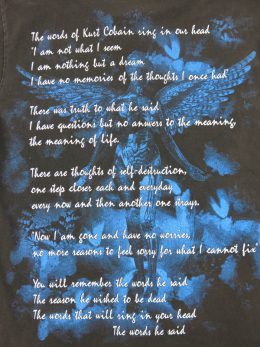 The words of Kurt Cobain ring in our head
'I am not what I seem
I am nothing but a dream
I have no memories of the thoughts I once had'
There was truth to what he said
I have questions but no answers to the meaning,
the meaning of life.
There are thoughts of self-destruction,
one step closer each and everyday
every now and then another one strays.
'Now I am gone and have no worries,
no more reasons to feel sorry for what I cannot fix'
You will remember the words he said
The reason he wished to be dead
The words that will ring in your head
The words he said